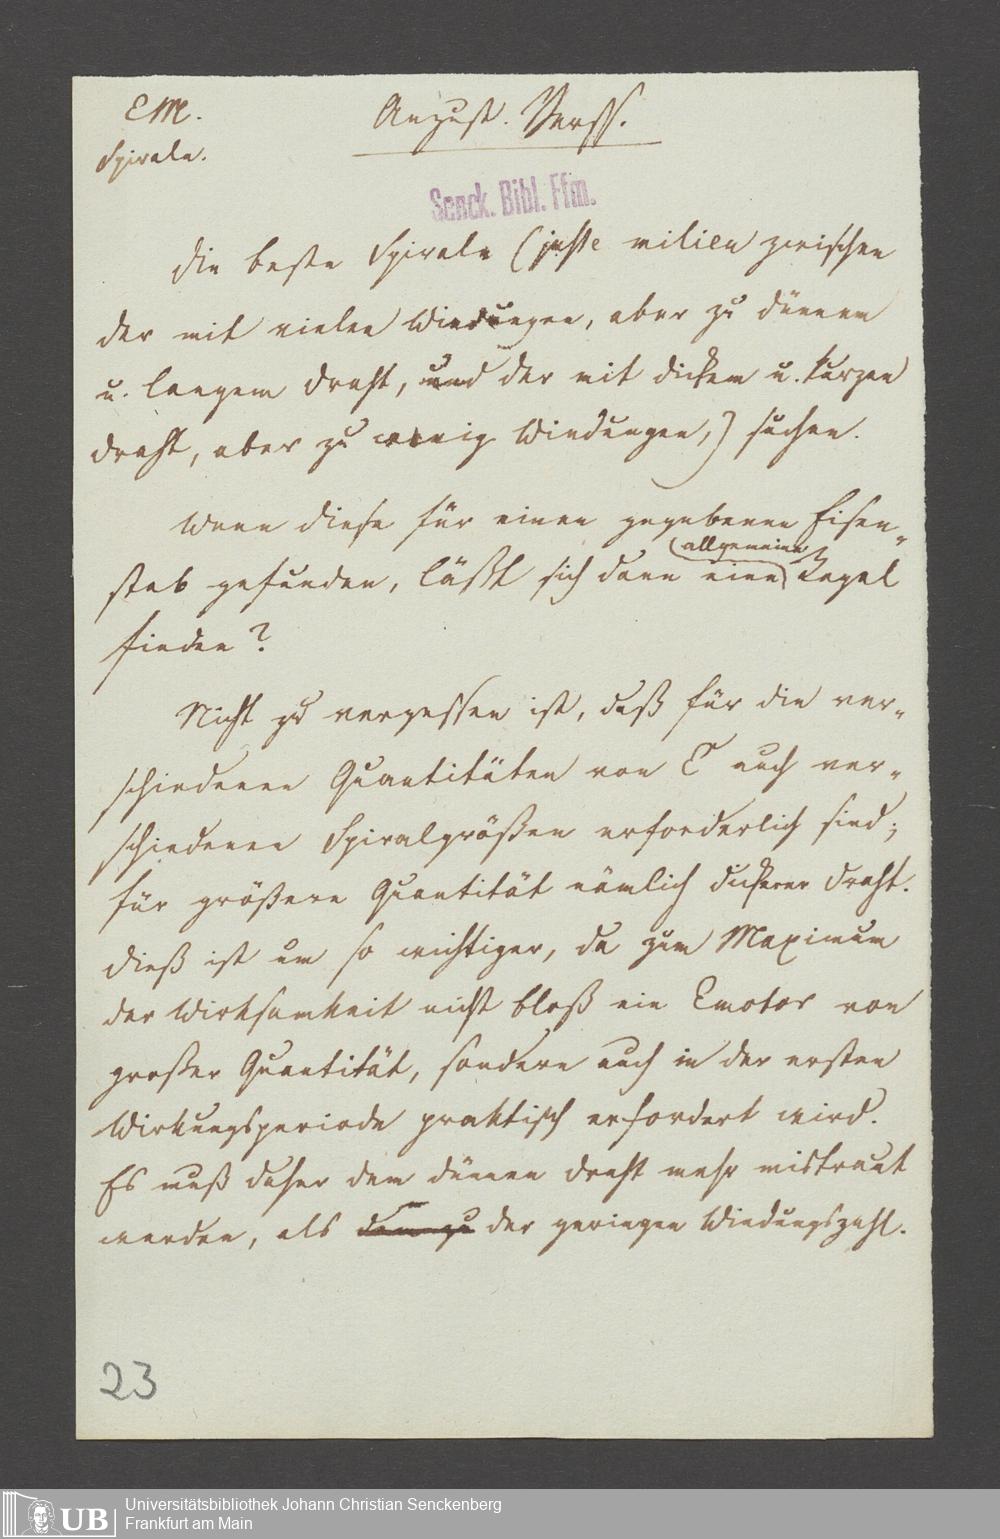 EM.
August. Verss.
Spirale.
Senck. Bibl. Ffm.
Die beste Spirale (juste milieu zwischen
der mit vielen Windungen, aber zu dünnem
u. langem Draht, und der mit dickem u. kurzen
Draht, aber zu wenig Windungen,) suchen.
Wenn diese für einen gegebenen Eisen-
stab gefunden, läßt sich dann eine allgemeine Regel
finden?
Nicht zu vergessen ist, daß für die ver-
schiedenen Quantitäten von E auch ver-
schiedenen Spiralgrößen erforderlich sind;
für größere Quantität nämlich dickerer Draht.
Dieß ist um so wichtiger, da zum Maximum
der Wirksamkeit nicht bloß ein Emotor von
großer Quantität, sondern auch in der ersten
Wirkungsperiode praktisch erfordert wird.
Es muß daher dem dünnen Draht mehr mistraut
werden, als der geringen Windungszahl.
23
UB
Universitätsbibliothek Johann Christian Senckenberg
Frankfurt am Main